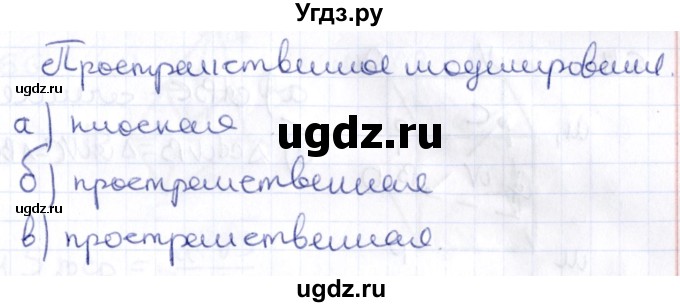 Угдз.ру
Пространственное моделирование.
gdz.ru
а) плоская
ugdz.ru
gdz.ru
б) пространственная
gdz.ru
в) пространственная.
ugdz.ru